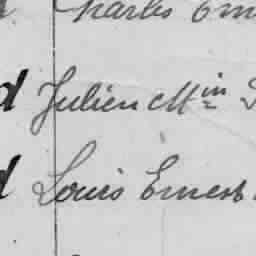 Charles Em
d Julien Min D
d Louis Ernest